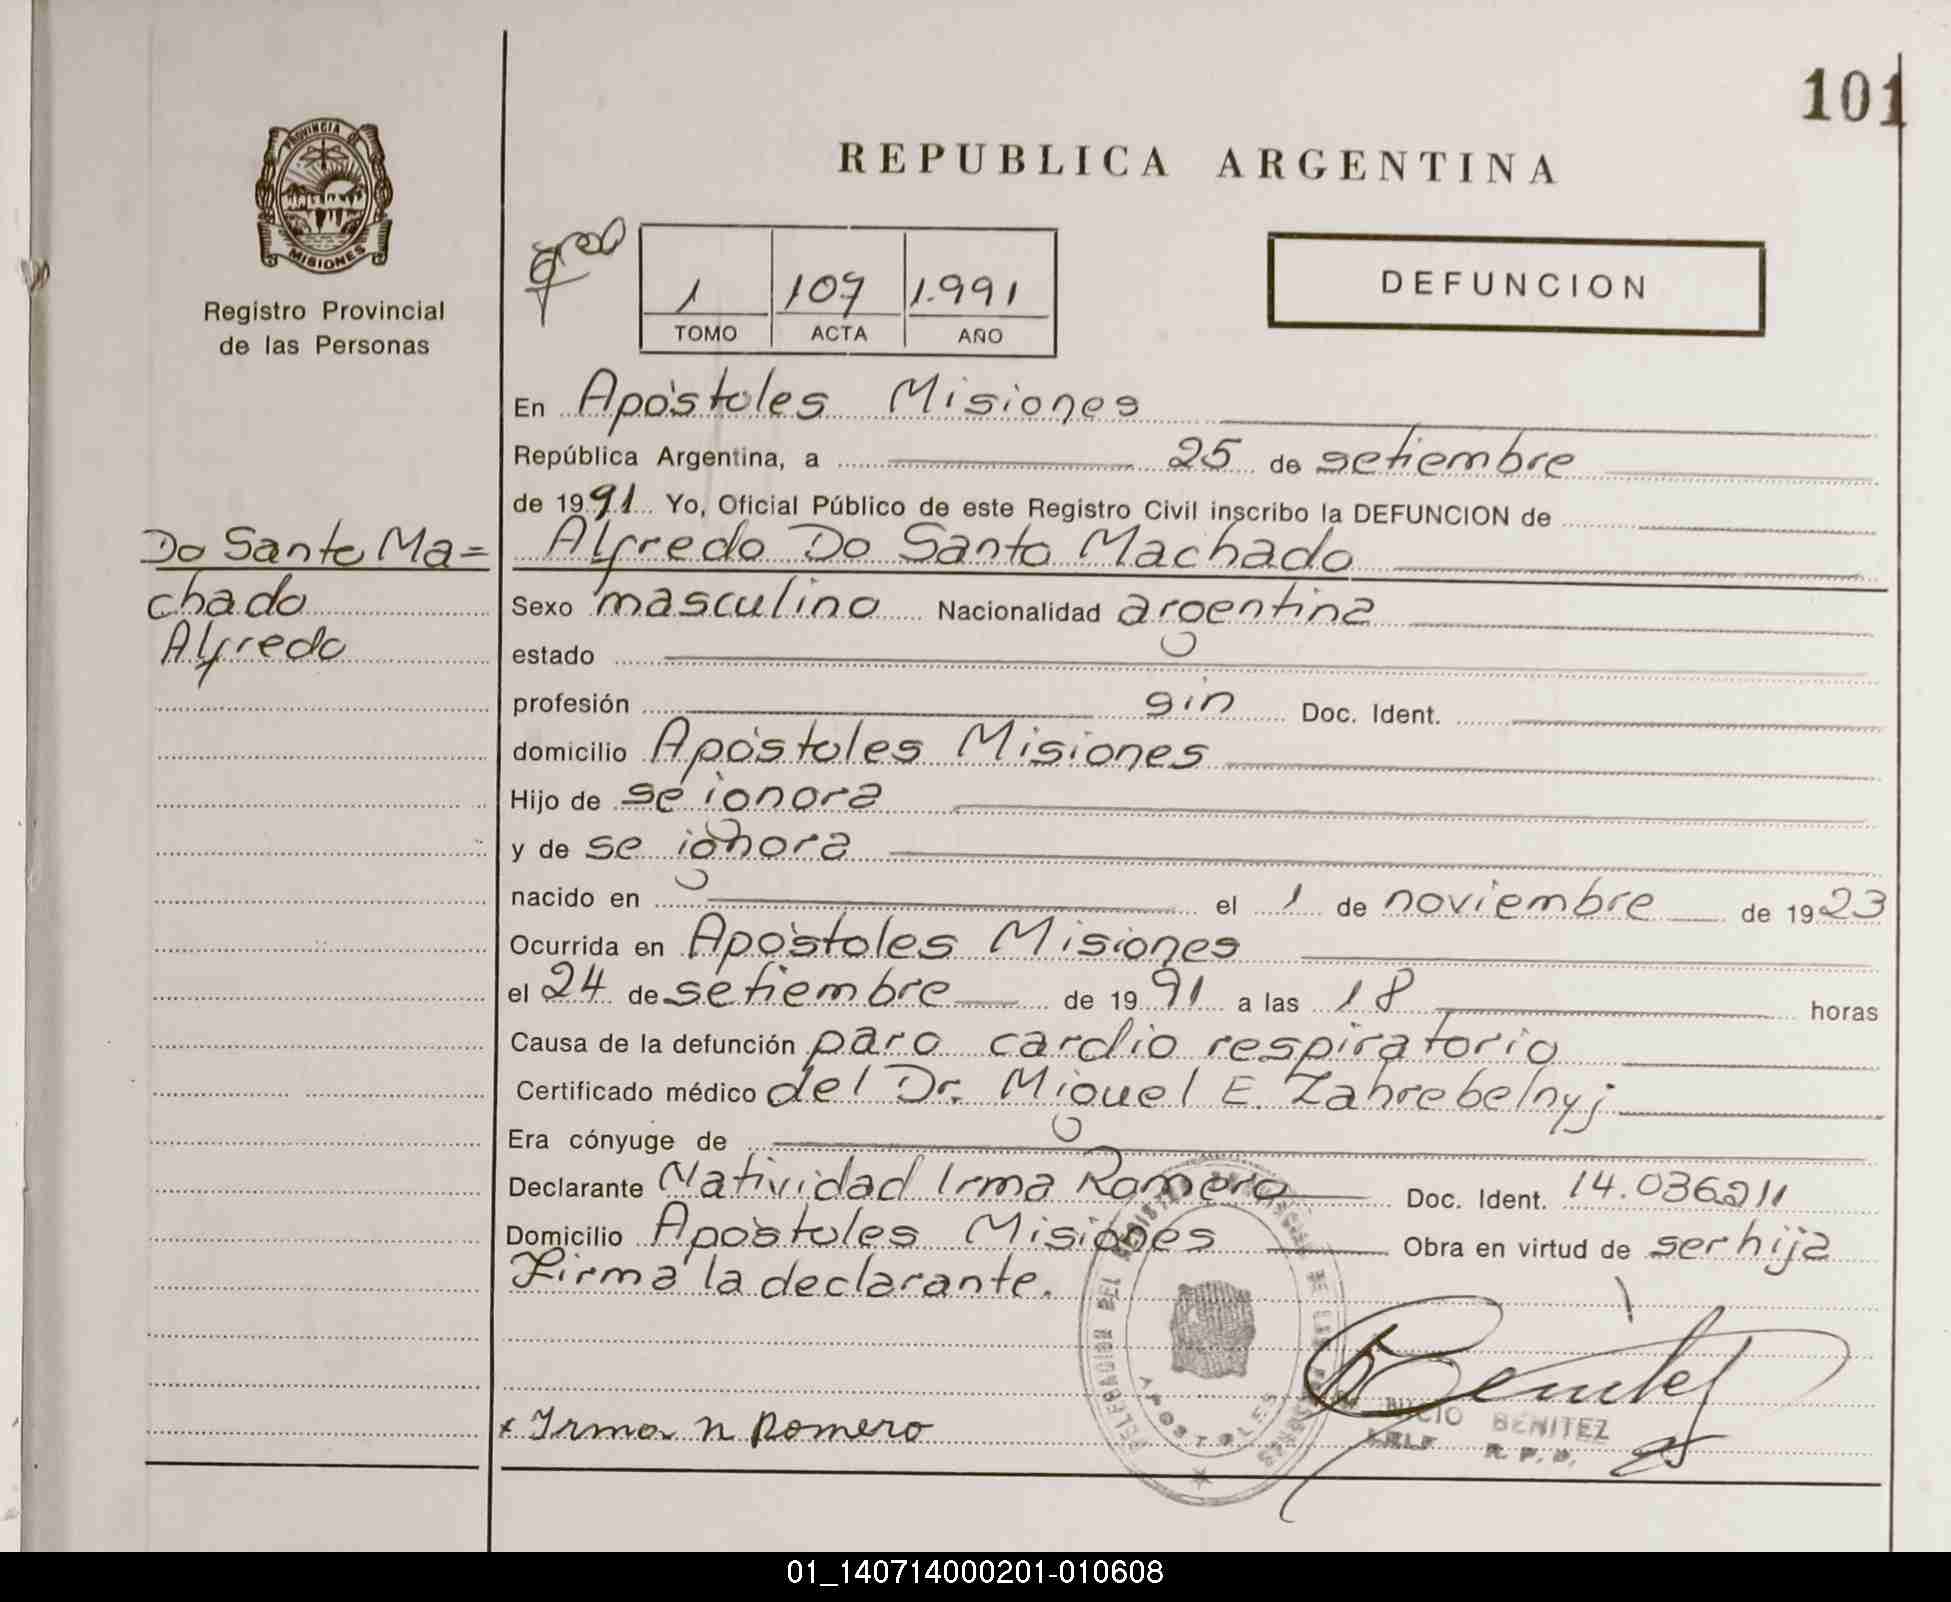 101
PROVINCIA DE
MISIONES
Registro Provincial
de las Personas
REPUBLICA ARGENTINA
1 107 1.991
TOMO ACTA AÑO
DEFUNCION
En Apóstoles Misiones
República Argentina, a 25 de setiembre
de 1991 Yo, Oficial Público de este Registro Civil inscribo la DEFUNCION de
Do Santo Ma=
chado
Alfredo
Alfredo Do Santo Machado
Sexo masculino Nacionalidad argentina
estado
profesión sin Doc. Ident.
domicilio Apóstoles Misiones
Hijo de se ignora
y de se ignora
nacido en el 1 de noviembre de 1923
Ocurrida en Apóstoles Misiones
el 24 de setiembre de 1991 a las 18 horas
Causa de la defunción paro cardio respiratorio
Certificado médico del Dr. Miguel E. Zahrebelnyj
Era cónyuge de
Declarante Natividad Irma Romero Doc. Ident. 14.036211
Domicilio Apóstoles Misiones Obra en virtud de ser hija
Firma la declarante.
APOSTOLES
BENITEZ
x Irma N Romero
01_140714000201-010608